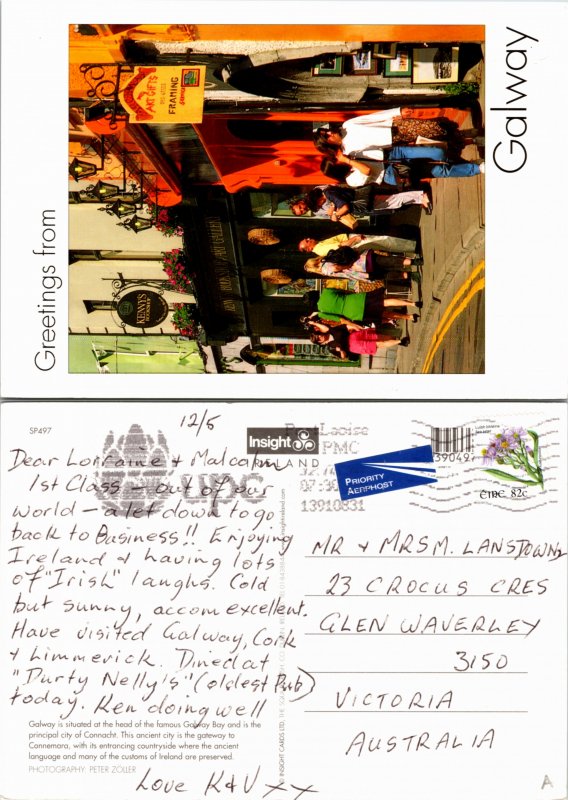 Greetings from
Galway
ART GIFTS
FRAMING
KENNYS
BOOKSHOP
ART GALLERY
SP497
12/5
Dear Lorraine + Malcolm
1st Class – out of our
world – a let down to go
back to Business!! Enjoying
Ireland & having lots
of "Irish" laughs. Cold
but sunny, accom excellent.
Have visited Galway, Cork
+ Limmerick. Dined at
"Durty Nelly's" (oldest Pub)
today. Ken doing well
Love K & V x x
Galway is situated at the head of the famous Galway Bay and is the
principal city of Connacht. This ancient city is the gateway to
Connemara, with its entrancing countryside where the ancient
language and many of the customs of Ireland are preserved.
PHOTOGRAPHY: PETER ZÖLLER
Insight
IRELAND
PMC
13010831
ups
PRIORITY
AERPHOST
390497
éire 82c
MR + MRS M. LANSDOWNE
23 CROCUS CRES
GLEN WAVERLEY
3150
VICTORIA
AUSTRALIA
© INSIGHT CARDS LTD.
A